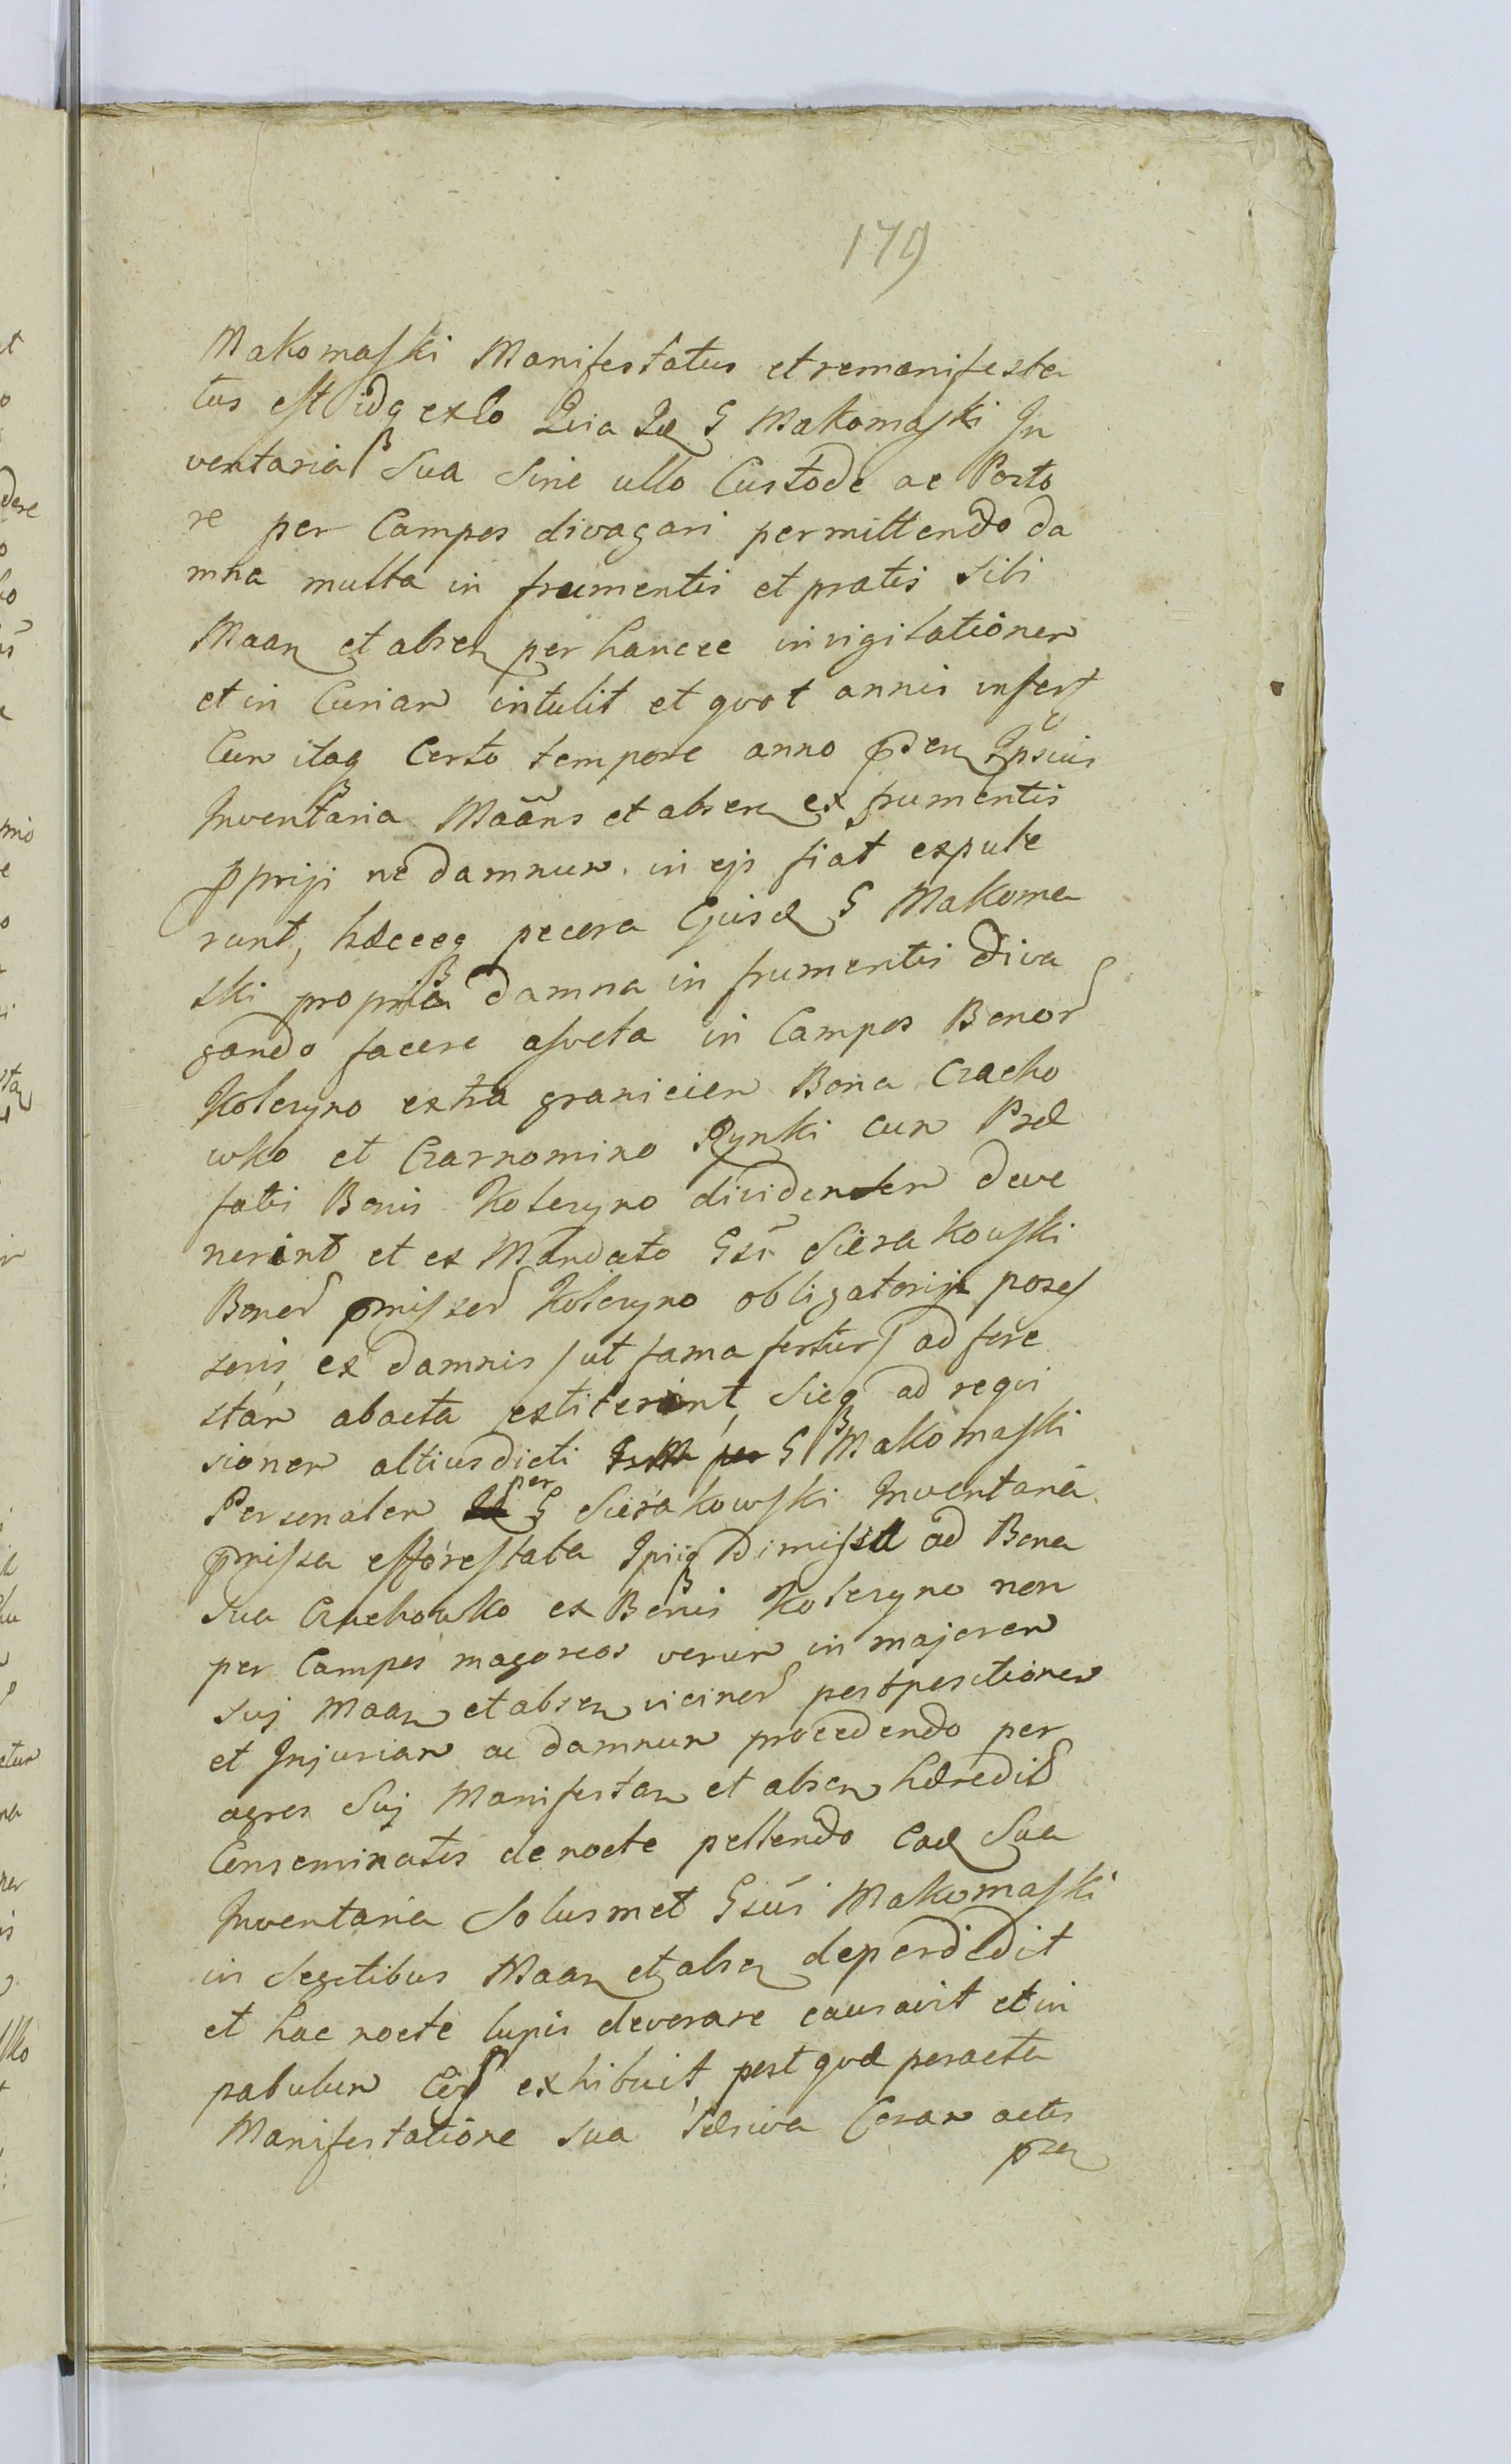 179
Makomaski Manifestatus et remanifesta
tus est idq exlo Quia Idem G Makomaski In
ventaria sua sine ullo Custode ac Pasto
re per Campos divagari permittendo da
mna multa in frumentis et pratis Sibi
Maan et absen per hancce invigilationem
et in Curiam intulit et quot annis infert
Cum itaq Certo tempore anno pden Ipsius
Inventaria Maans et absen ex frumentis
pprijs ne damnum in ejs fiat expule
runt, hæcceq pecora Ejusd G Makoma
ski propria damna in frumentis diva
gando facere assveta in Campos Bonor
Koleczyno extra graniciem Bona Czacho
wko et Czarnomino Rynki cum Præ
fatis Bonis Koleczyno dividentem deve
nerint et ex Mandato Gsi Sierakowski
Bonor pmissor Koleczyno obligatorij posses
soris, ex damnis / ut fama fertur / ad fore
stam abacta extiterint, Sicq ad requi
sionem altiusdicti G Makomaski
Personalem per G Sierakowski Inventaria
pmissa efforestata Ipiiq dimissa ad Bona
Sua Czachowko ex Bonis Koleczyno non
per Campos magoreos verum in majorem
suj Maan et absen vicinor postpositionem
et Injuriam ac damnum procedendo per
agros Suj Manifestan et absen hæredit
Conseminatos de nocte pellendo Ead Sua
Inventaria Solusmet Gsus Makomaski
in Segetibus Maan et absen deperdidit
et hac nocte lupis devorare causavit et in
pabulum exhibuit, post quæ peracta
Manifestatione sua Coram actis
pn